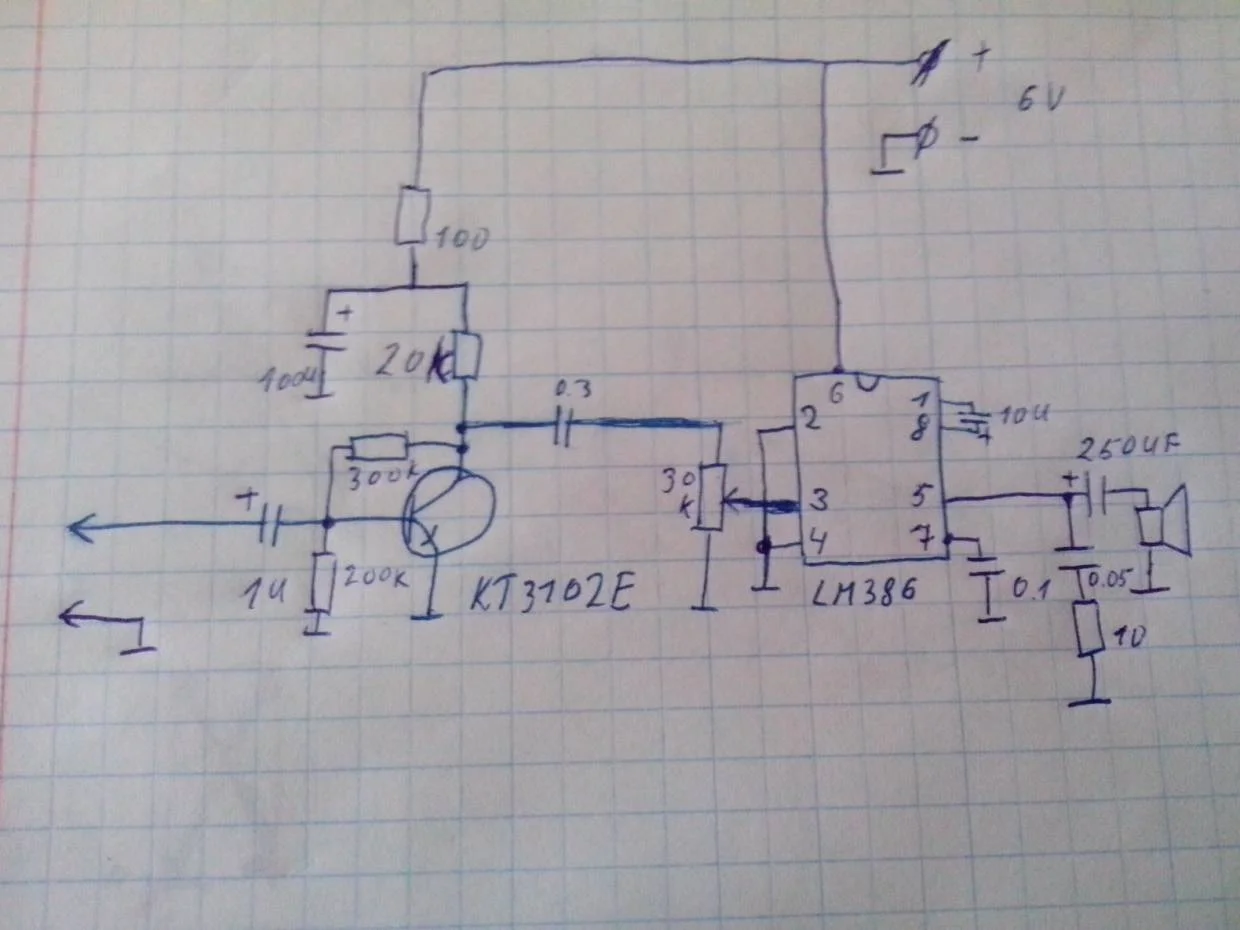 +
6V
-
100
+
100u
20k
0.3
300k
30
k
+
1u
200k
KT3102E
6
2
3
4
1
8
5
7
LM386
10u
+
250uF
+
0.1
0.05
10